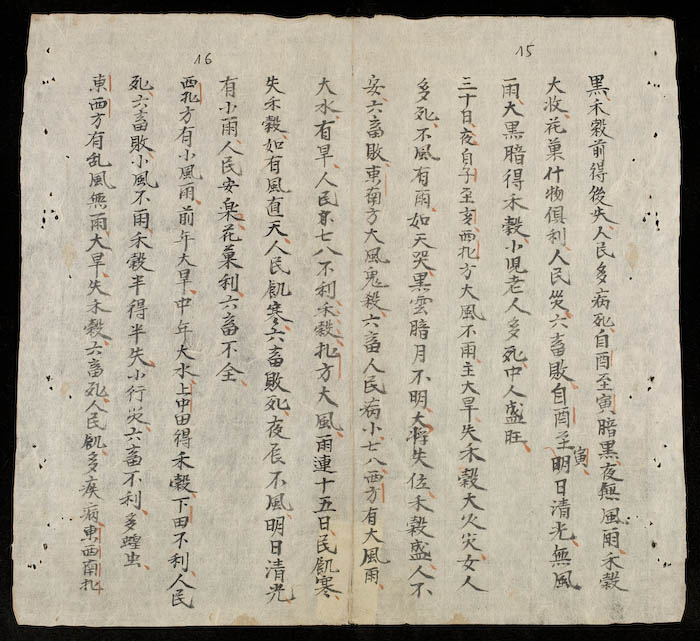 15
黒禾穀前得後失人民多病死自酉至寅暗黒夜無風雨禾穀
大收花菓什物俱利人民災六畜敗自酉至寅明日清光無風
雨大黑暗得禾穀小児老人多死中人盛旺
三十日夜自子至亥西北方大風不雨主大旱失禾穀大火灾女人
多死不風有雨如天哭黒雲暗月不明大將失位禾穀盛人不
安六畜敗東南方大風鬼殺六畜人民病小七八西方有大風雨
16
大水有旱人民亦七八不利禾穀北方大風雨連十五日民飢寒
失禾穀如有風直天人民飢寒六畜敗死夜長不風明日清光
有小雨人民安楽花菓利六畜不全
西北方有小風雨前年大旱中年大水上中田得禾穀下田不利人民
死六畜敗小風不雨禾穀半得半失小行災六畜不利多蝗虫
東西方有乱風無雨大旱失禾穀六畜死人民飢多疾病東西南北